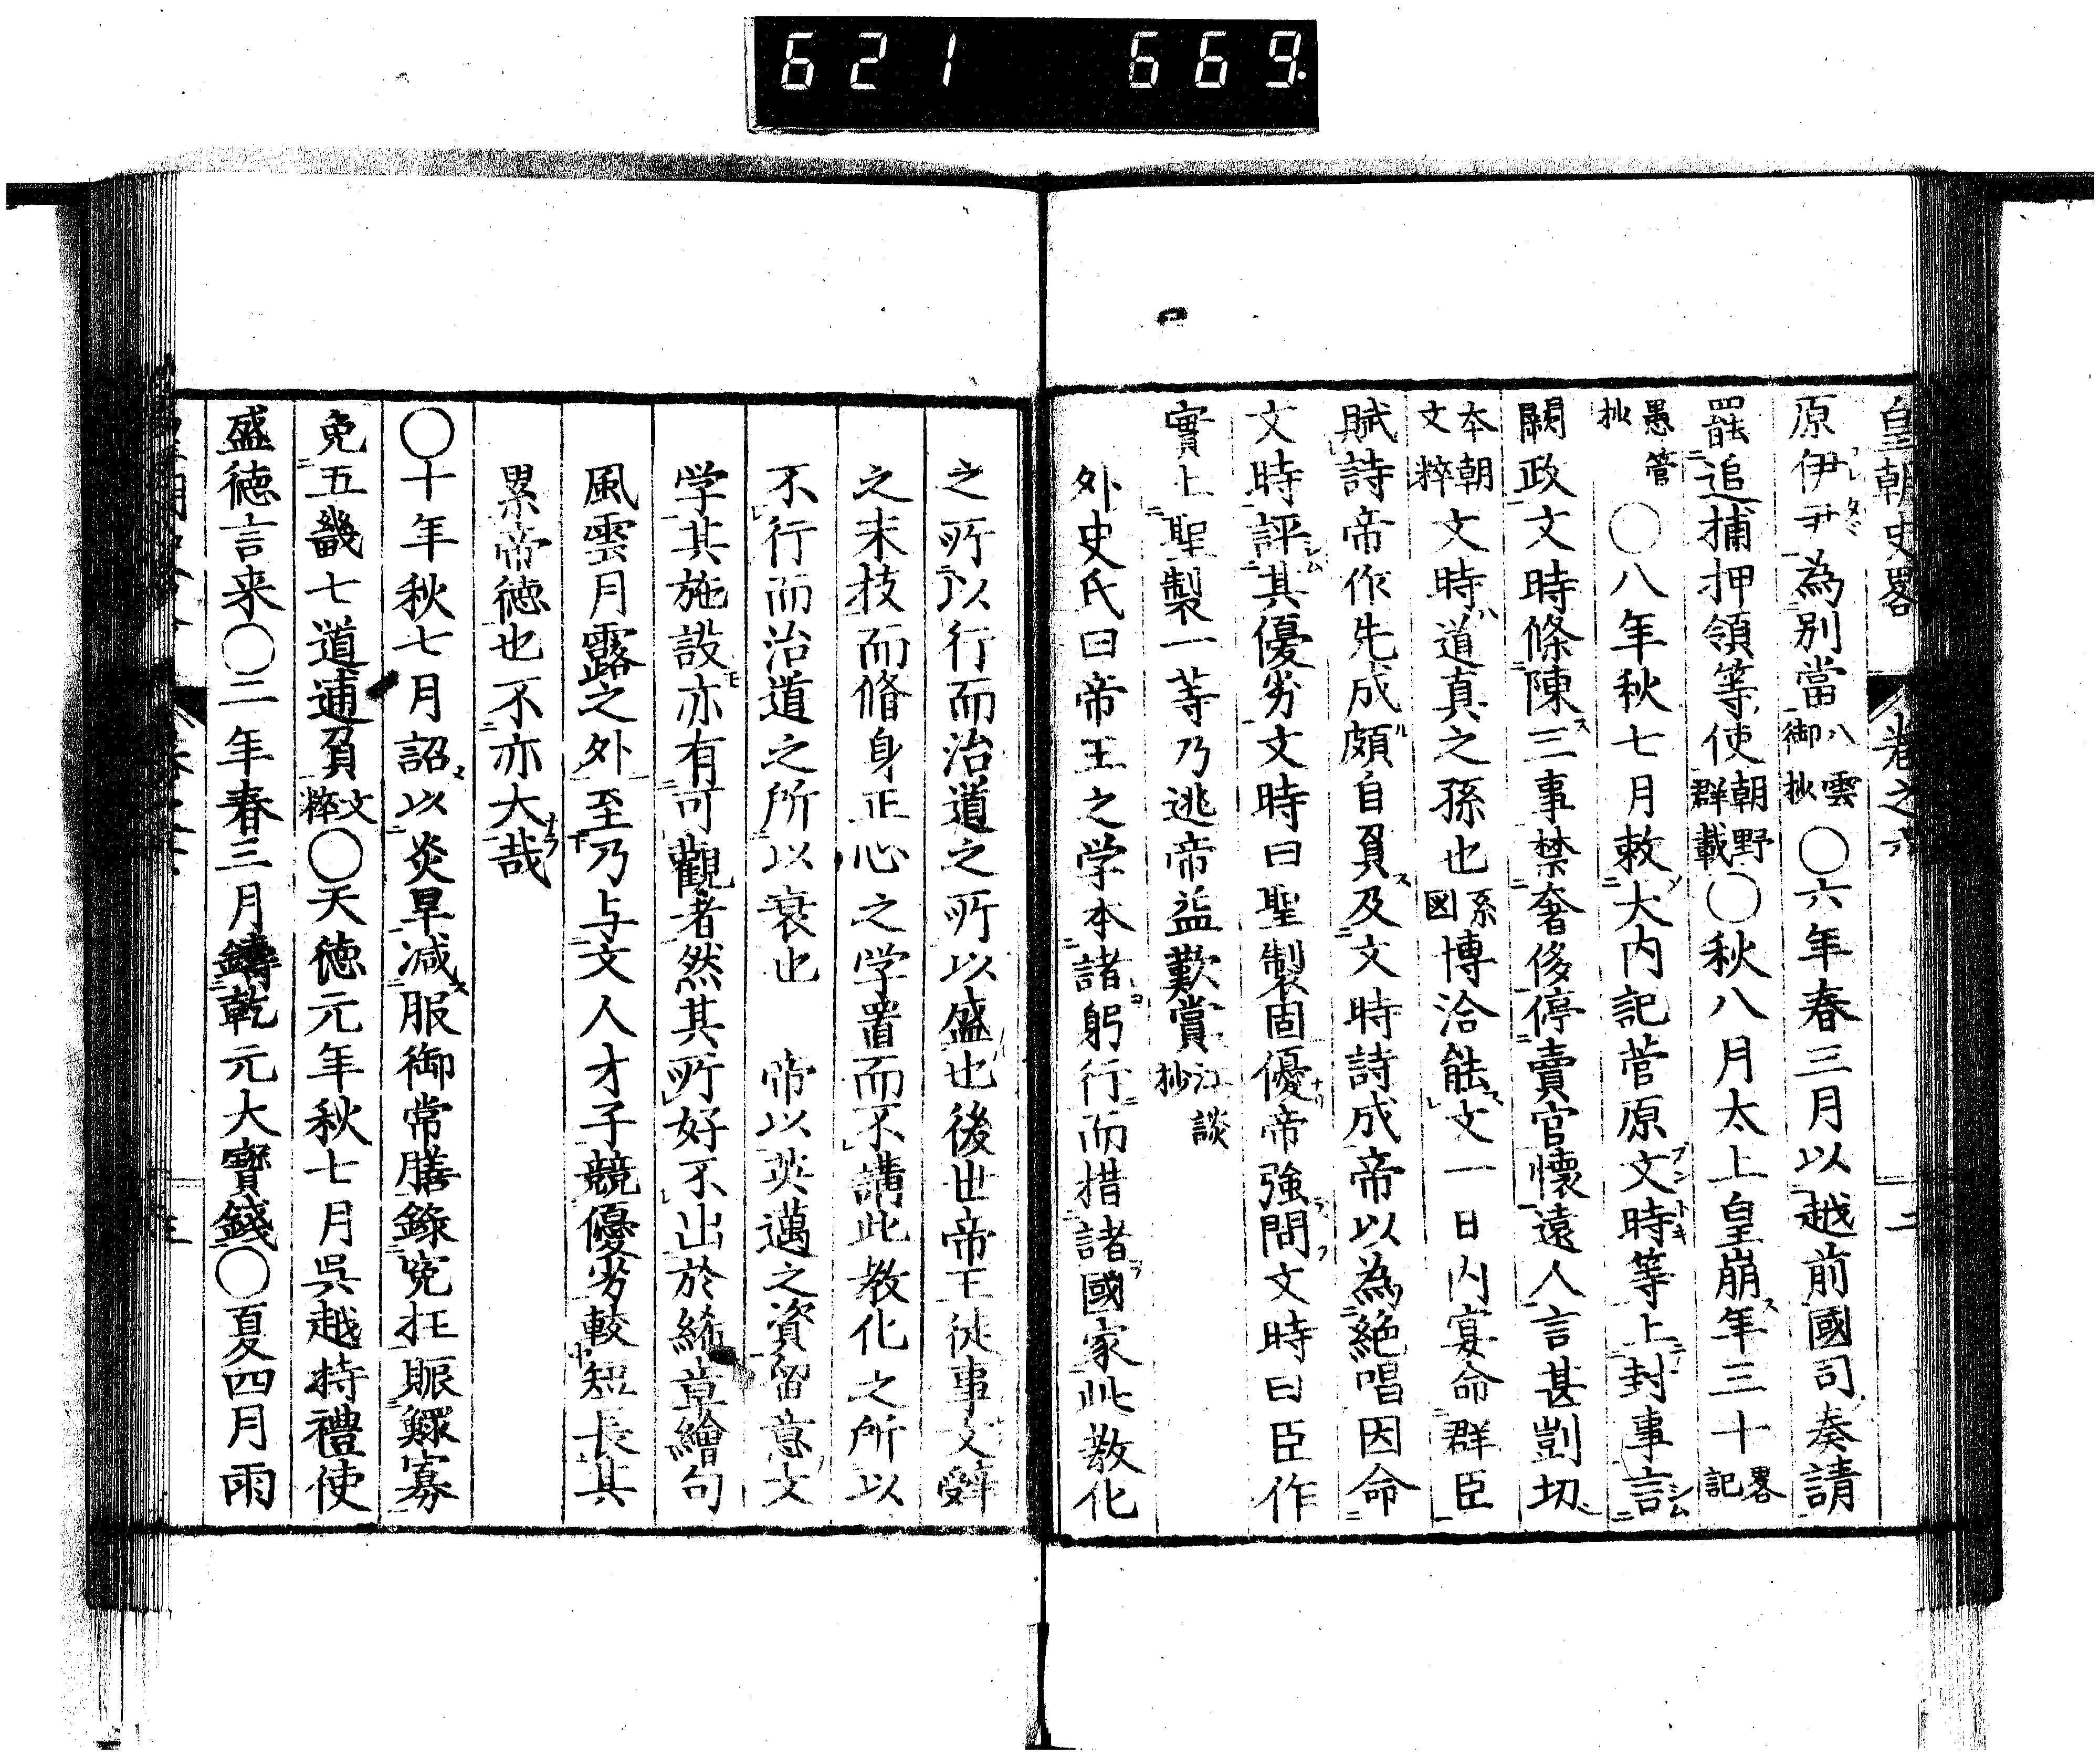 621 669.
皇朝史畧 卷之六 二
原伊尹為別當八雲御抄○六年春三月以越前國司奏請
罷追捕押領等使朝野群載○秋八月太上皇崩年三十畧記
愚管抄○八年秋七月敕大内記菅原文時等上封事言
闕政文時條陳三事禁奢侈停賣官懷遠人言甚剴切
本朝文粹文時道真之孫也系図博洽能文一日内宴命群臣
賦詩帝作先成頗自負及文時詩成帝以為絶唱因命
文時評其優劣文時曰聖製固優帝強問文時曰臣作
實上聖製一等乃逃帝益歎賞江談抄
外史氏曰帝王之学本諸躬行而措諸國家此教化
之所以行而治道之所以盛也後世帝王徒事文辤
之末技而脩身正心之学置而不講此教化之所以
不行而治道之所以衰也 帝以英邁之資留意文
学其施設亦有可觀者然其所好不出於絺章繪句
風雲月露之外至乃与文人才子競優劣較短長其
累帝徳也不亦大哉
○十年秋七月詔以炎旱減服御常膳錄寃枉賑鰥寡
免五畿七道逋負文粹○天徳元年秋七月吳越持禮使
盛徳言来○二年春三月鑄乾元大寶錢○夏四月雨